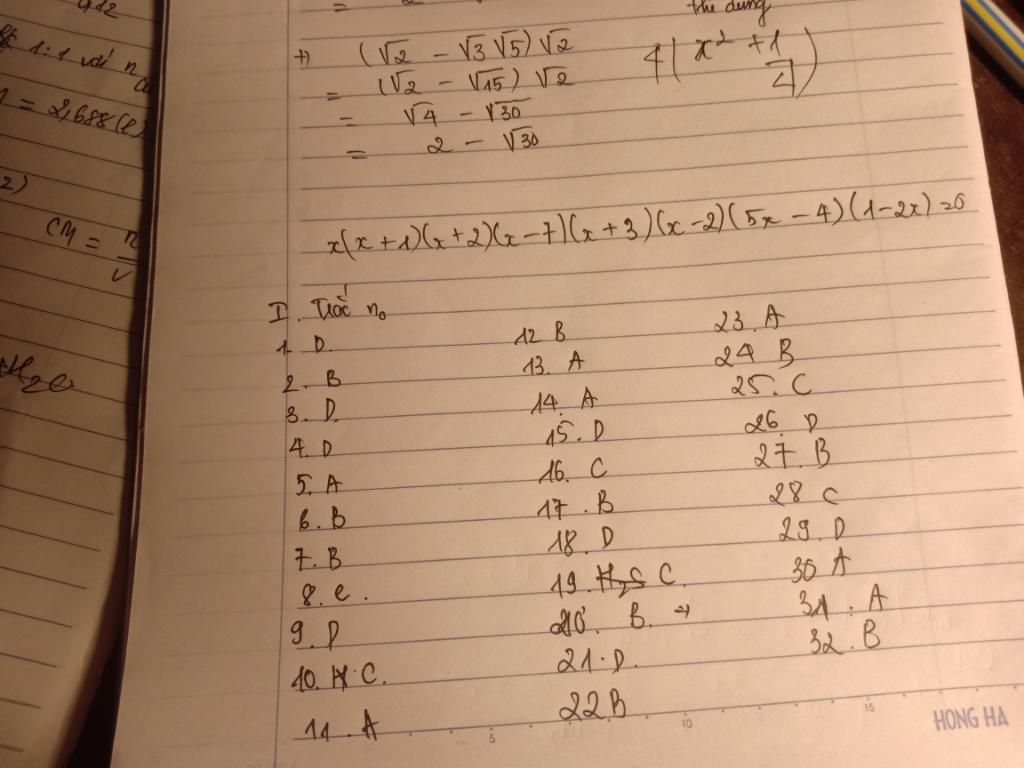 0,12
1:1 với n
= 2,688(l)
2)
CM = n/V
H2O
thì dùng
+) (√2 − √3 √5) √2
= (√2 − √15) √2
= √4 − √30
= 2 − √30
4(x² + 1/4)
x(x+1)(x+2)(x−7)(x+3)(x−2)(5x−4)(1−2x)=0
I. Trắc no
1. D
2. B
3. D.
4. D
5. A
6. B
7. B
8. C.
9. D
10. C.
11. A
12 B
13. A
14. A
15. D
16. C
17. B
18. D
19. H2S C.
20. B. →
21. D.
22 B
23. A
24 B
25. C
26. D
27. B
28 C
29. D
30 A
31. A
32. B
5 10 15
HONG HA